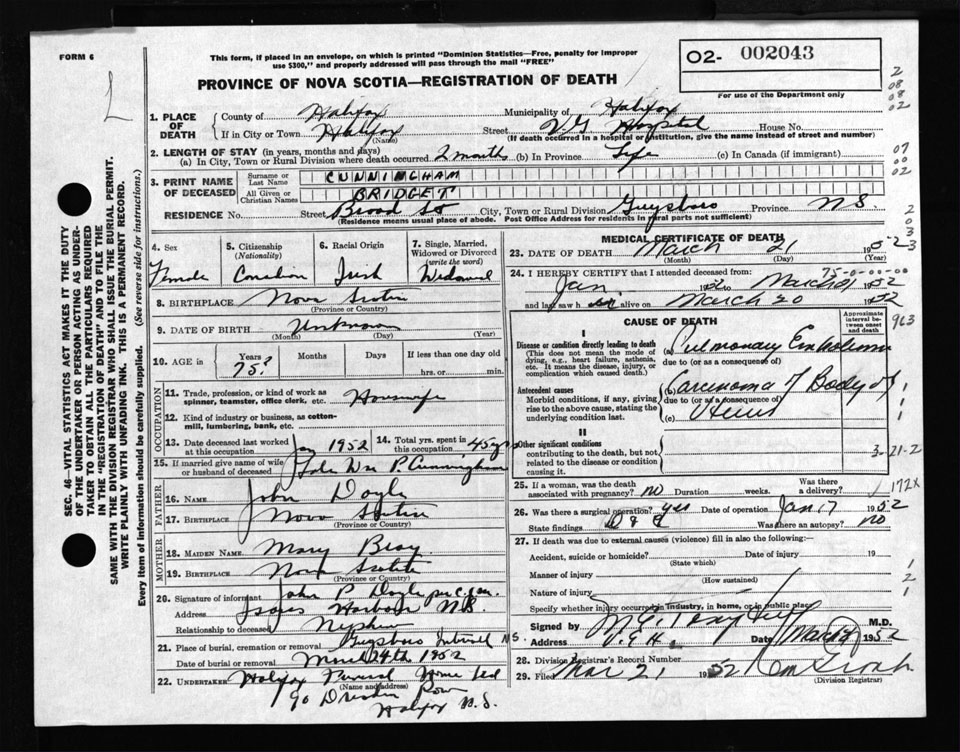 FORM 6
This form, if placed in an envelope, on which is printed "Dominion Statistics—Free, penalty for improper
use $300," and properly addressed will pass through the mail "FREE"
02- 002043
For use of the Department only
PROVINCE OF NOVA SCOTIA—REGISTRATION OF DEATH
1. PLACE OF DEATH
County of Halifax Municipality of Halifax
If in City or Town Halifax Street V.G. Hospital House No.
(Name) (If death occurred in a hospital or institution, give the name instead of street and number)
2. LENGTH OF STAY (in years, months and days)
(a) In City, Town or Rural Division where death occurred 2 months (b) In Province Life (c) In Canada (if immigrant)
3. PRINT NAME OF DECEASED
Surname or Last Name CUNNINGHAM
All Given or Christian Names BRIDGET
RESIDENCE No. Street Broad St City, Town or Rural Division Guysboro Province N.S.
(Residence means usual place of abode. Post Office Address for residents in rural parts not sufficient)
4. Sex Female
5. Citizenship (Nationality) Canadian
6. Racial Origin Irish
7. Single, Married, Widowed or Divorced (write the word) Widowed
8. BIRTHPLACE Nova Scotia
(Province or Country)
9. DATE OF BIRTH Unknown
(Month) (Day) (Year)
10. AGE in Years Months Days If less than one day old
75? hrs. or min.
OCCUPATION
11. Trade, profession, or kind of work as spinner, teamster, office clerk, etc. Housewife
12. Kind of industry or business, as cotton-mill, lumbering, bank, etc.
13. Date deceased last worked at this occupation Jan 1952 14. Total yrs. spent in this occupation 45 yrs
15. If married give name of wife or husband of deceased Wm P. Cunningham
FATHER
16. NAME John Doyle
17. BIRTHPLACE Nova Scotia
(Province or Country)
MOTHER
18. MAIDEN NAME Mary
19. BIRTHPLACE Nova Scotia
(Province or Country)
20. Signature of informant John P Doyle
Address Isaacs Harbour N.S.
Relationship to deceased Nephew
21. Place of burial, cremation or removal Guysboro N.S.
Date of burial or removal March 24th 1952
22. UNDERTAKER Halifax Funeral Home Ltd
(Name and address)
90 Dresden Row
Halifax N.S.
MEDICAL CERTIFICATE OF DEATH
23. DATE OF DEATH March 21 1952
(Month) (Day) (Year)
75-0-00-00
24. I HEREBY CERTIFY that I attended deceased from
Jan 1952 to March 21 1952
and last saw h alive on March 20 1952
CAUSE OF DEATH
Approximate interval between onset and death
I
Disease or condition directly leading to death
(This does not mean the mode of dying, e.g., heart failure, asthenia, etc. It means the disease, injury, or complication which caused death.)
(a) Pulmonary Embolism
due to (or as a consequence of)
Antecedent causes
Morbid conditions, if any, giving rise to the above cause, stating the underlying condition last.
Carcinoma of Body of
due to (or as a consequence of)
Uterus
II
Other significant conditions
contributing to the death, but not related to the disease or condition causing it.
3-21-2
25. If a woman, was the death associated with pregnancy? no Duration weeks. Was there a delivery?
172X
26. Was there a surgical operation? yes Date of operation Jan 17 1952
State findings D & C Was there an autopsy? no
27. If death was due to external causes (violence) fill in also the following:—
Accident, suicide or homicide? Date of injury 19
(State which)
Manner of injury
(How sustained)
Nature of injury
Specify whether injury occurred in industry, in home, or in public place
Signed by M.D.
Address V.G.H. Date March 1952
28. Division Registrar's Record Number
29. Filed Mar 21 1952
(Division Registrar)
SEC. 46—VITAL STATISTICS ACT MAKES IT THE DUTY
OF THE UNDERTAKER OR PERSON ACTING AS UNDER-
TAKER TO OBTAIN ALL THE PARTICULARS REQUIRED
IN THE "REGISTRATION OF DEATH" AND TO FILE THE
SAME WITH THE DIVISION REGISTRAR WHO SHALL ISSUE THE BURIAL PERMIT.
WRITE PLAINLY WITH UNFADING INK. THIS IS A PERMANENT RECORD.
Every item of information should be carefully supplied. (See reverse side for instructions.)
2
08
08
02
07
00
02
2
0
3
3
963
1
1
1
1
2
1